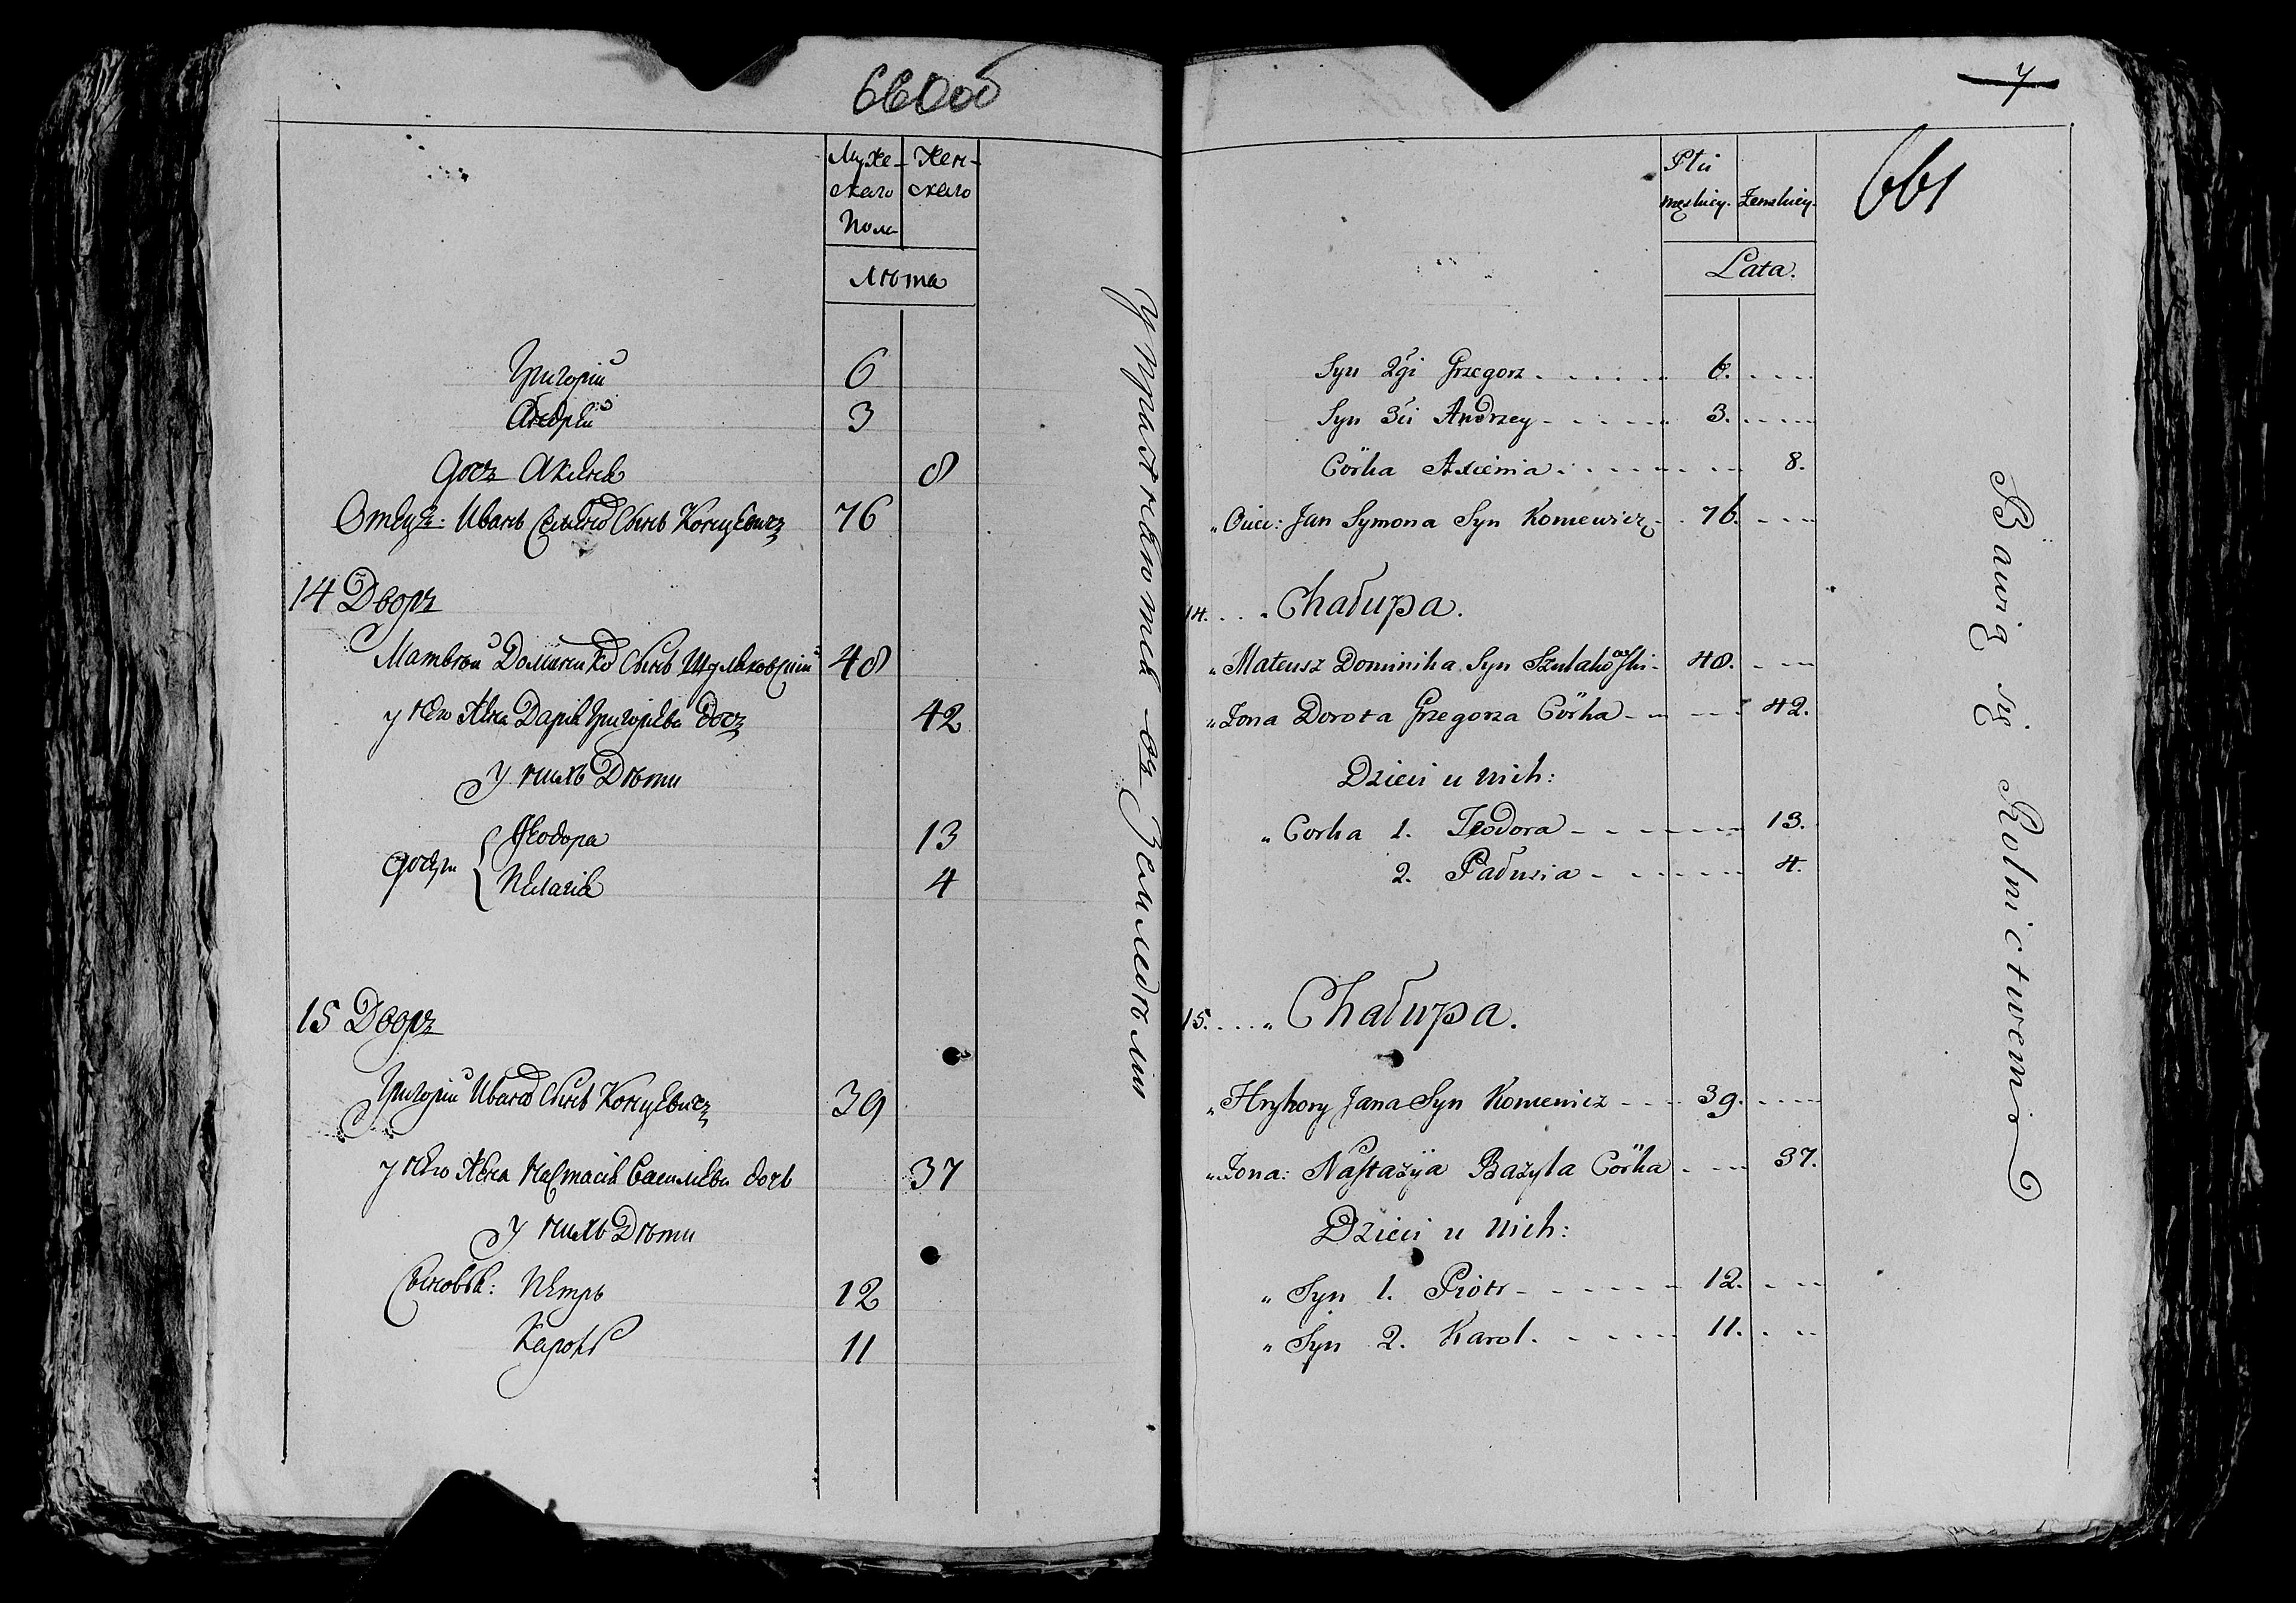 660 об
Муже- Жен-
скаго скаго
Пола
Лѣта
Григорій 6
Андрей 3
дочь Аксенія 8
Отецъ: Иванъ Семенов Сынъ Концевичъ 76
14 Дворъ
Матвѣй Домиников Сынъ Шуляковскій 48
у него Жена Дарія Григорьева дочь 42
у нихъ Дѣти
дочери Феодора 13
Пелагія 4
15 Дворъ
Григорій Иванов Сынъ Концевичъ 39
у него Жена Настасія Васильева дочь 37
у нихъ Дѣти
Сыновья: Петръ 12
Каролъ 11
упражняются въ Земледѣліи
7
661
Płci
męskiey. żenskiey.
Lata.
Syn 2gi Grzegorz 6.
Syn 3ci Andrzey 3.
Córka Axienia 8.
„ Ociec: Jan Symona Syn Koncewicz 76.
14. Chałupa.
„ Mateusz Dominika Syn Szulakowski 48.
„ Żona Dorota Grzegorza Córka 42.
Dzieci u nich:
„ Corka 1. Teodora 13.
2. Pałusia 4.
15. „ Chałupa.
„ Hryhory Jana Syn Koncewicz 39.
„ Żona: Nastazÿa Bazyla Córka 37.
Dzieci u nich:
„ Syn 1. Piotr 12.
„ Syn 2. Karol. 11.
Bawią się Rolnictwem